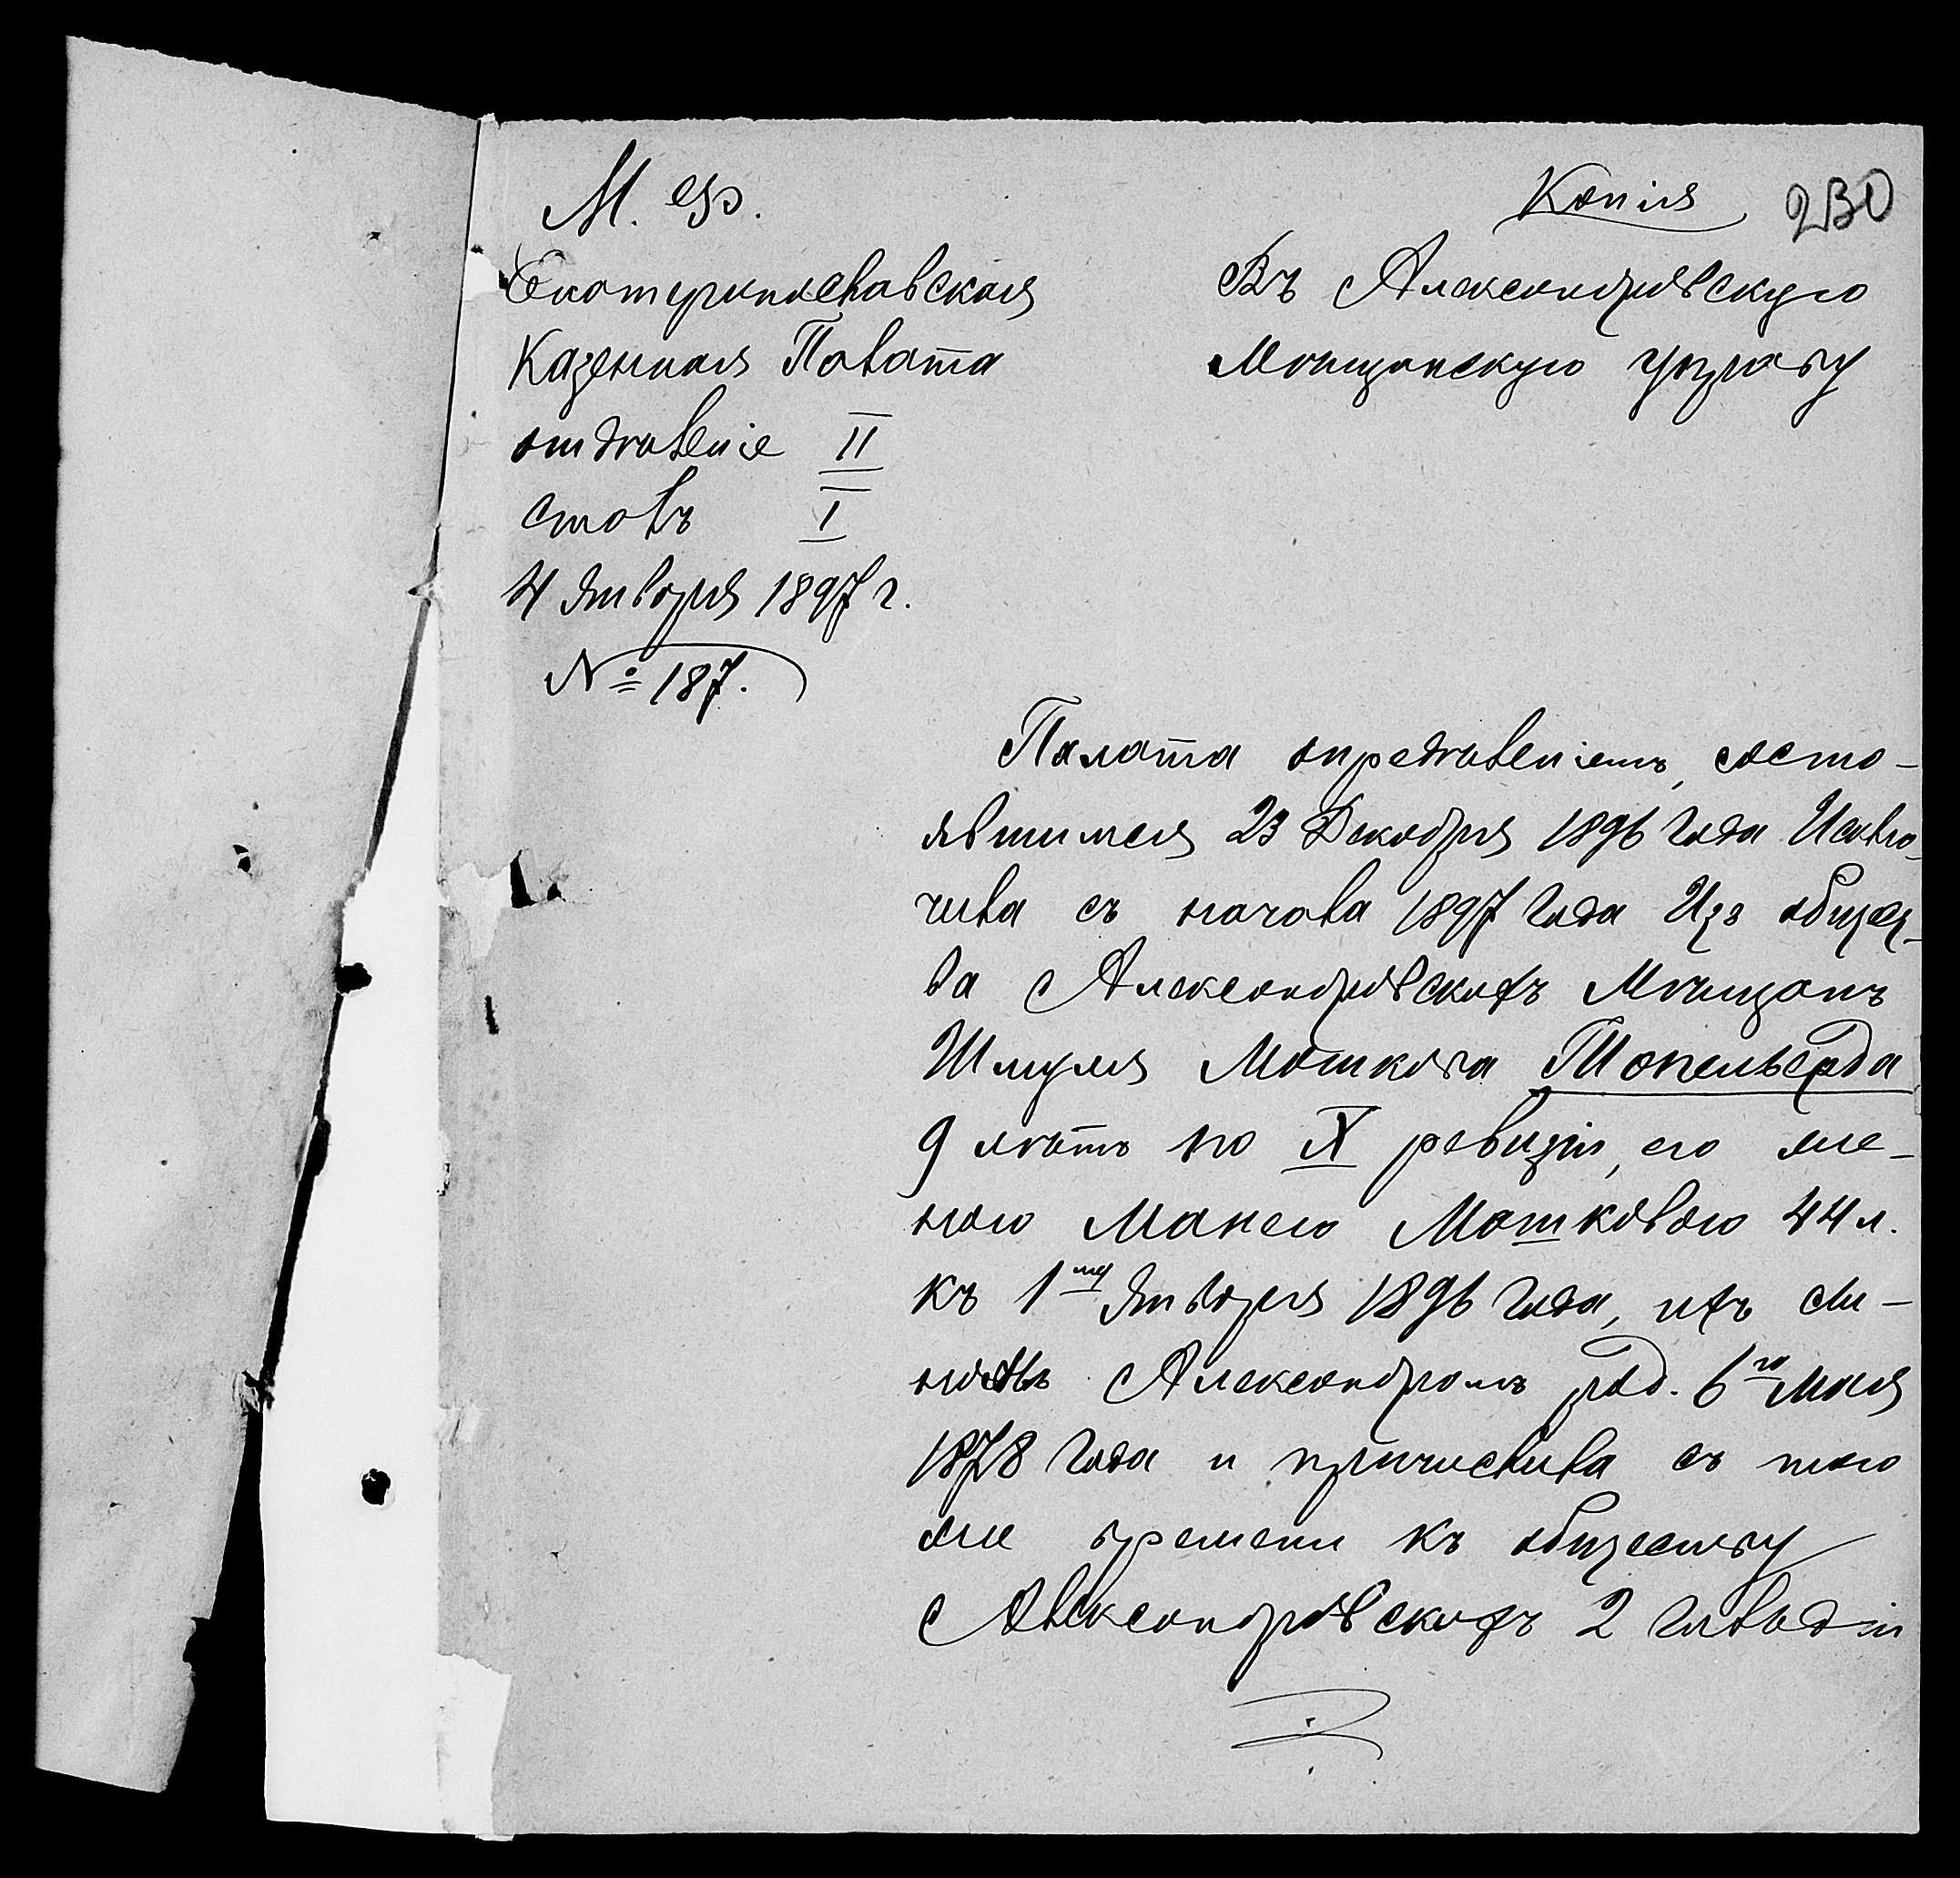 М. Ф.
Копія
230
Екатеринославская
Казенная Палата
отдѣленіе II
столъ I
4 Января 1897 г.
№ 187.
Въ Александровскую
Мѣщанскую управу
Палата опредѣленіемъ, состо-
явшимся 23 Декабря 1896 года Исклю-
чила съ начала 1897 года Изъ общест-
ва Александровскихъ Мѣщанъ
Шмуля Мошкова
9 лѣтъ по X ревизіи, его же-
ною Манею Мошковою 44 л.
къ 1му Января 1896 года, ихъ сы-
номъ Александромъ род. 6го Мая
1878 года и причислила съ того
же времени къ обществу
Александровскихъ 2 гильдіи